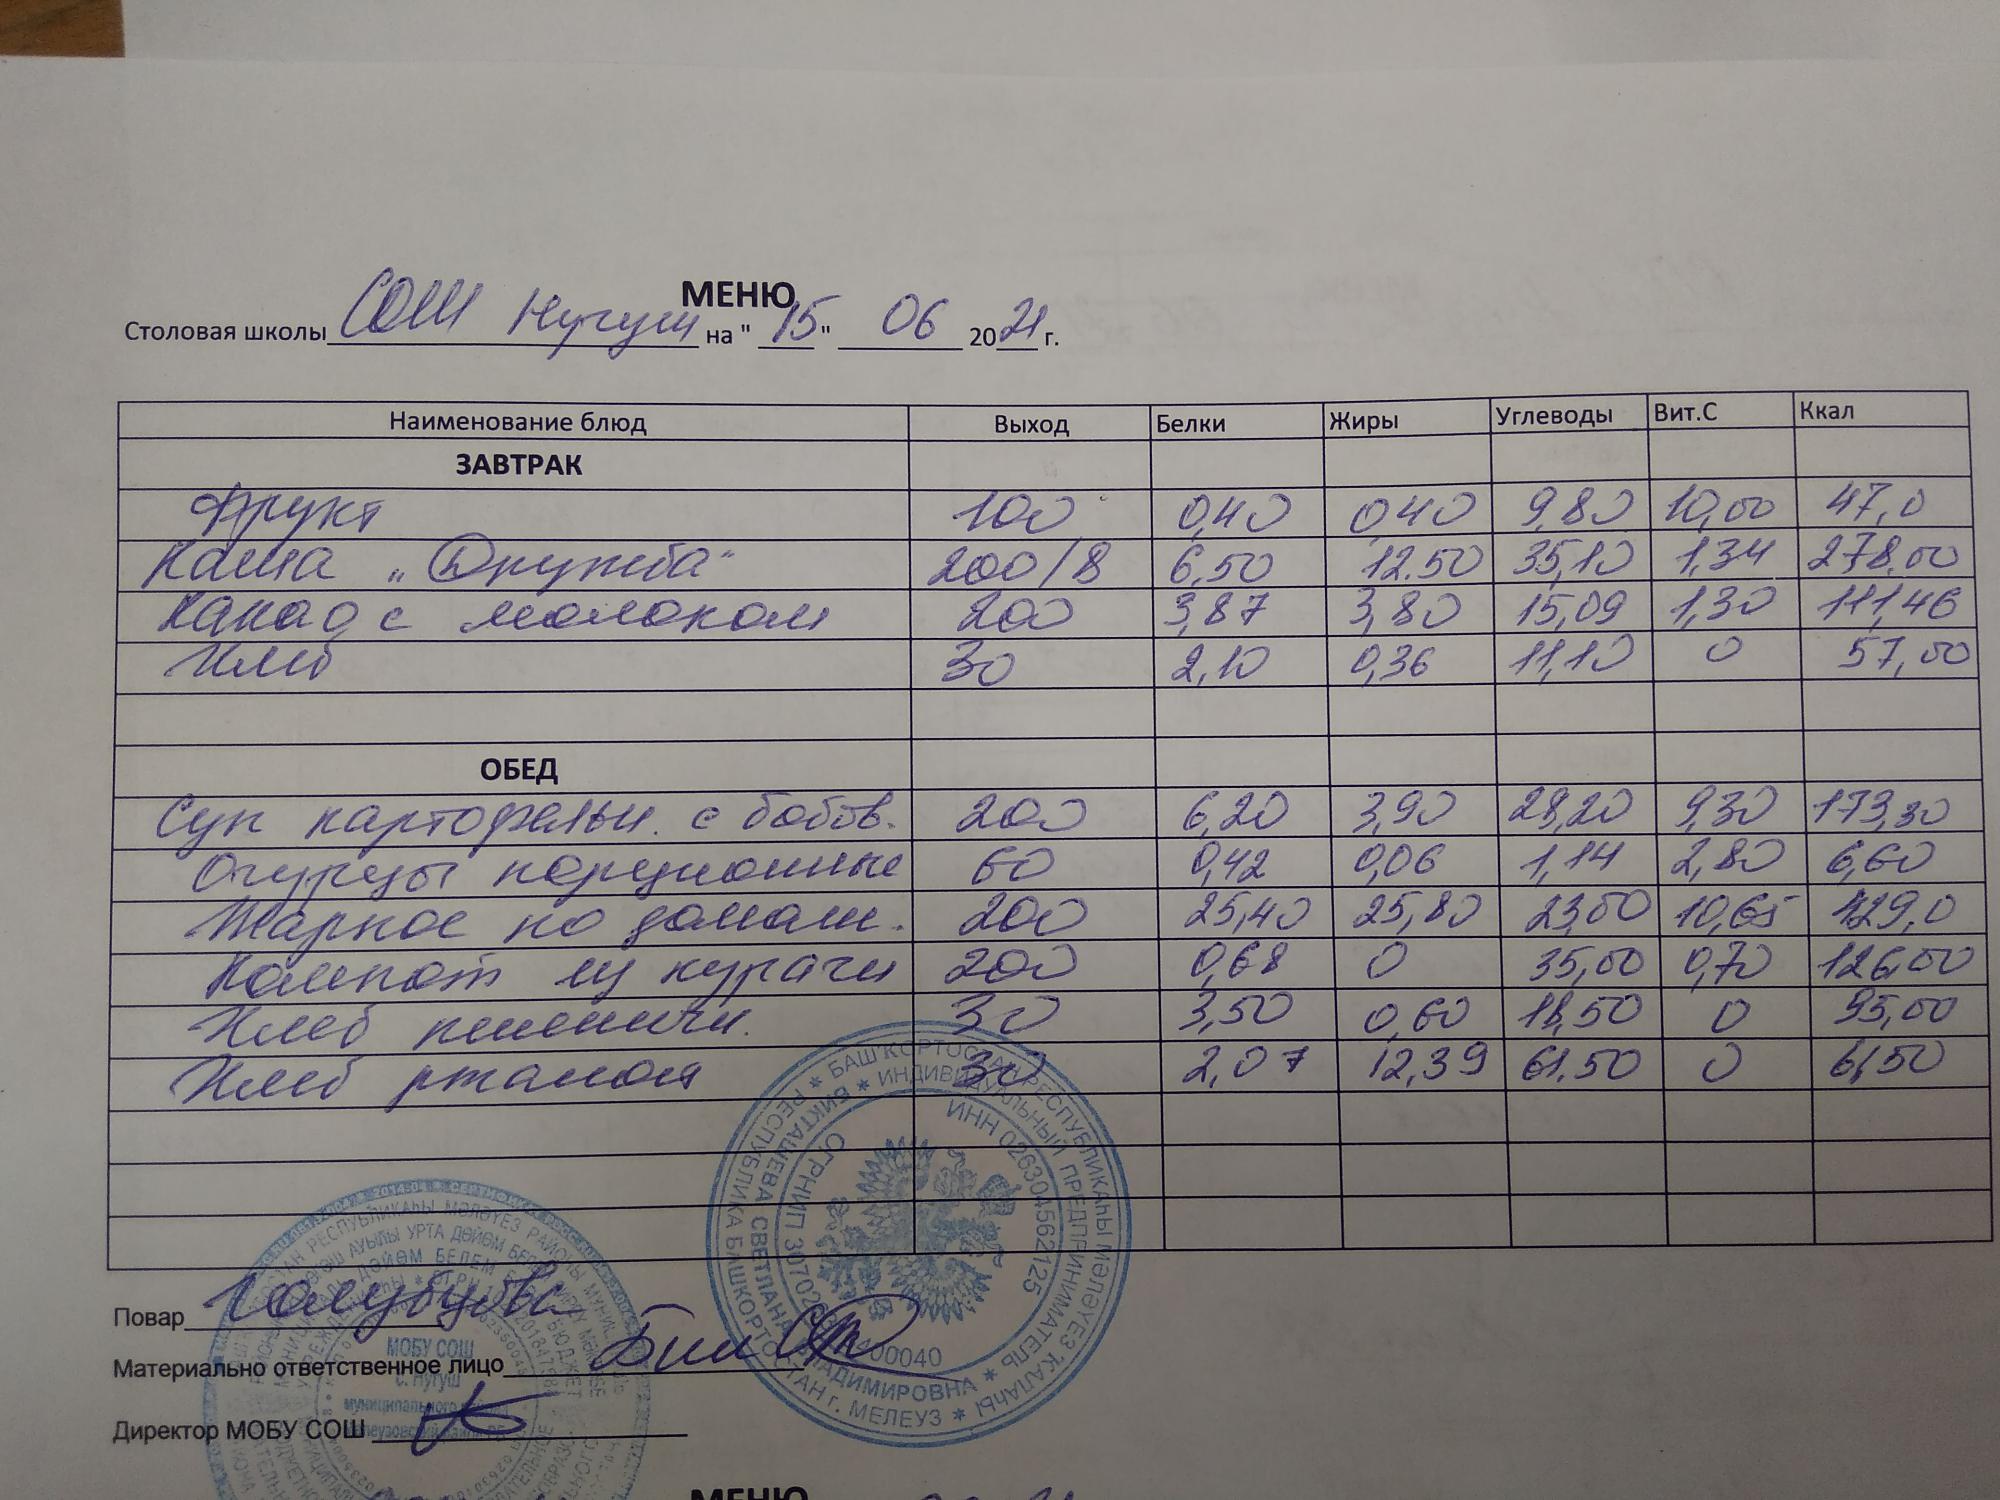 МЕНЮ
Столовая школы СОШ Нугуш на " 15 " 06 2021 г.
Наименование блюд Выход Белки Жиры Углеводы Вит.С Ккал
ЗАВТРАК
Фрукт 100 0,40 0,40 9,80 10,00 47,0
Каша „Дружба" 200/8 6,50 12.50 35,10 1,34 278,00
Какао с молоком 200 3,87 3,80 15,09 1,30 111,46
Хлеб 30 2,10 0,36 11,10 0 57,00
ОБЕД
Суп картофельн. с бобов. 200 6,20 3,90 28,20 9,30 173,30
Огурцы порционные 60 0,42 0,06 1,14 2,80 6,60
Жаркое по домаш. 200 25,40 25,80 23,00 10,65 429,0
Компот из кураги 200 0,68 0 35,00 0,70 126,00
Хлеб пшеничн. 30 3,50 0,60 18,50 0 95,00
Хлеб ржаной 30 2,07 12,39 61.50 0 61,50
БАШҠОРТОСТАН РЕСПУБЛИКАҺЫ МӘЛӘҮЕЗ ҠАЛАҺЫ
РЕСПУБЛИКА БАШКОРТОСТАН г. МЕЛЕУЗ
ИНДИВИДУАЛЬНЫЙ ПРЕДПРИНИМАТЕЛЬ
БИКТАШЕВА СВЕТЛАНА ВЛАДИМИРОВНА
ИНН 026304562125
ОГРНИП
Повар
Материально ответственное лицо
МОБУ СОШ
с. Нугуш
муниципального
Директор МОБУ СОШ
МЕНЮ